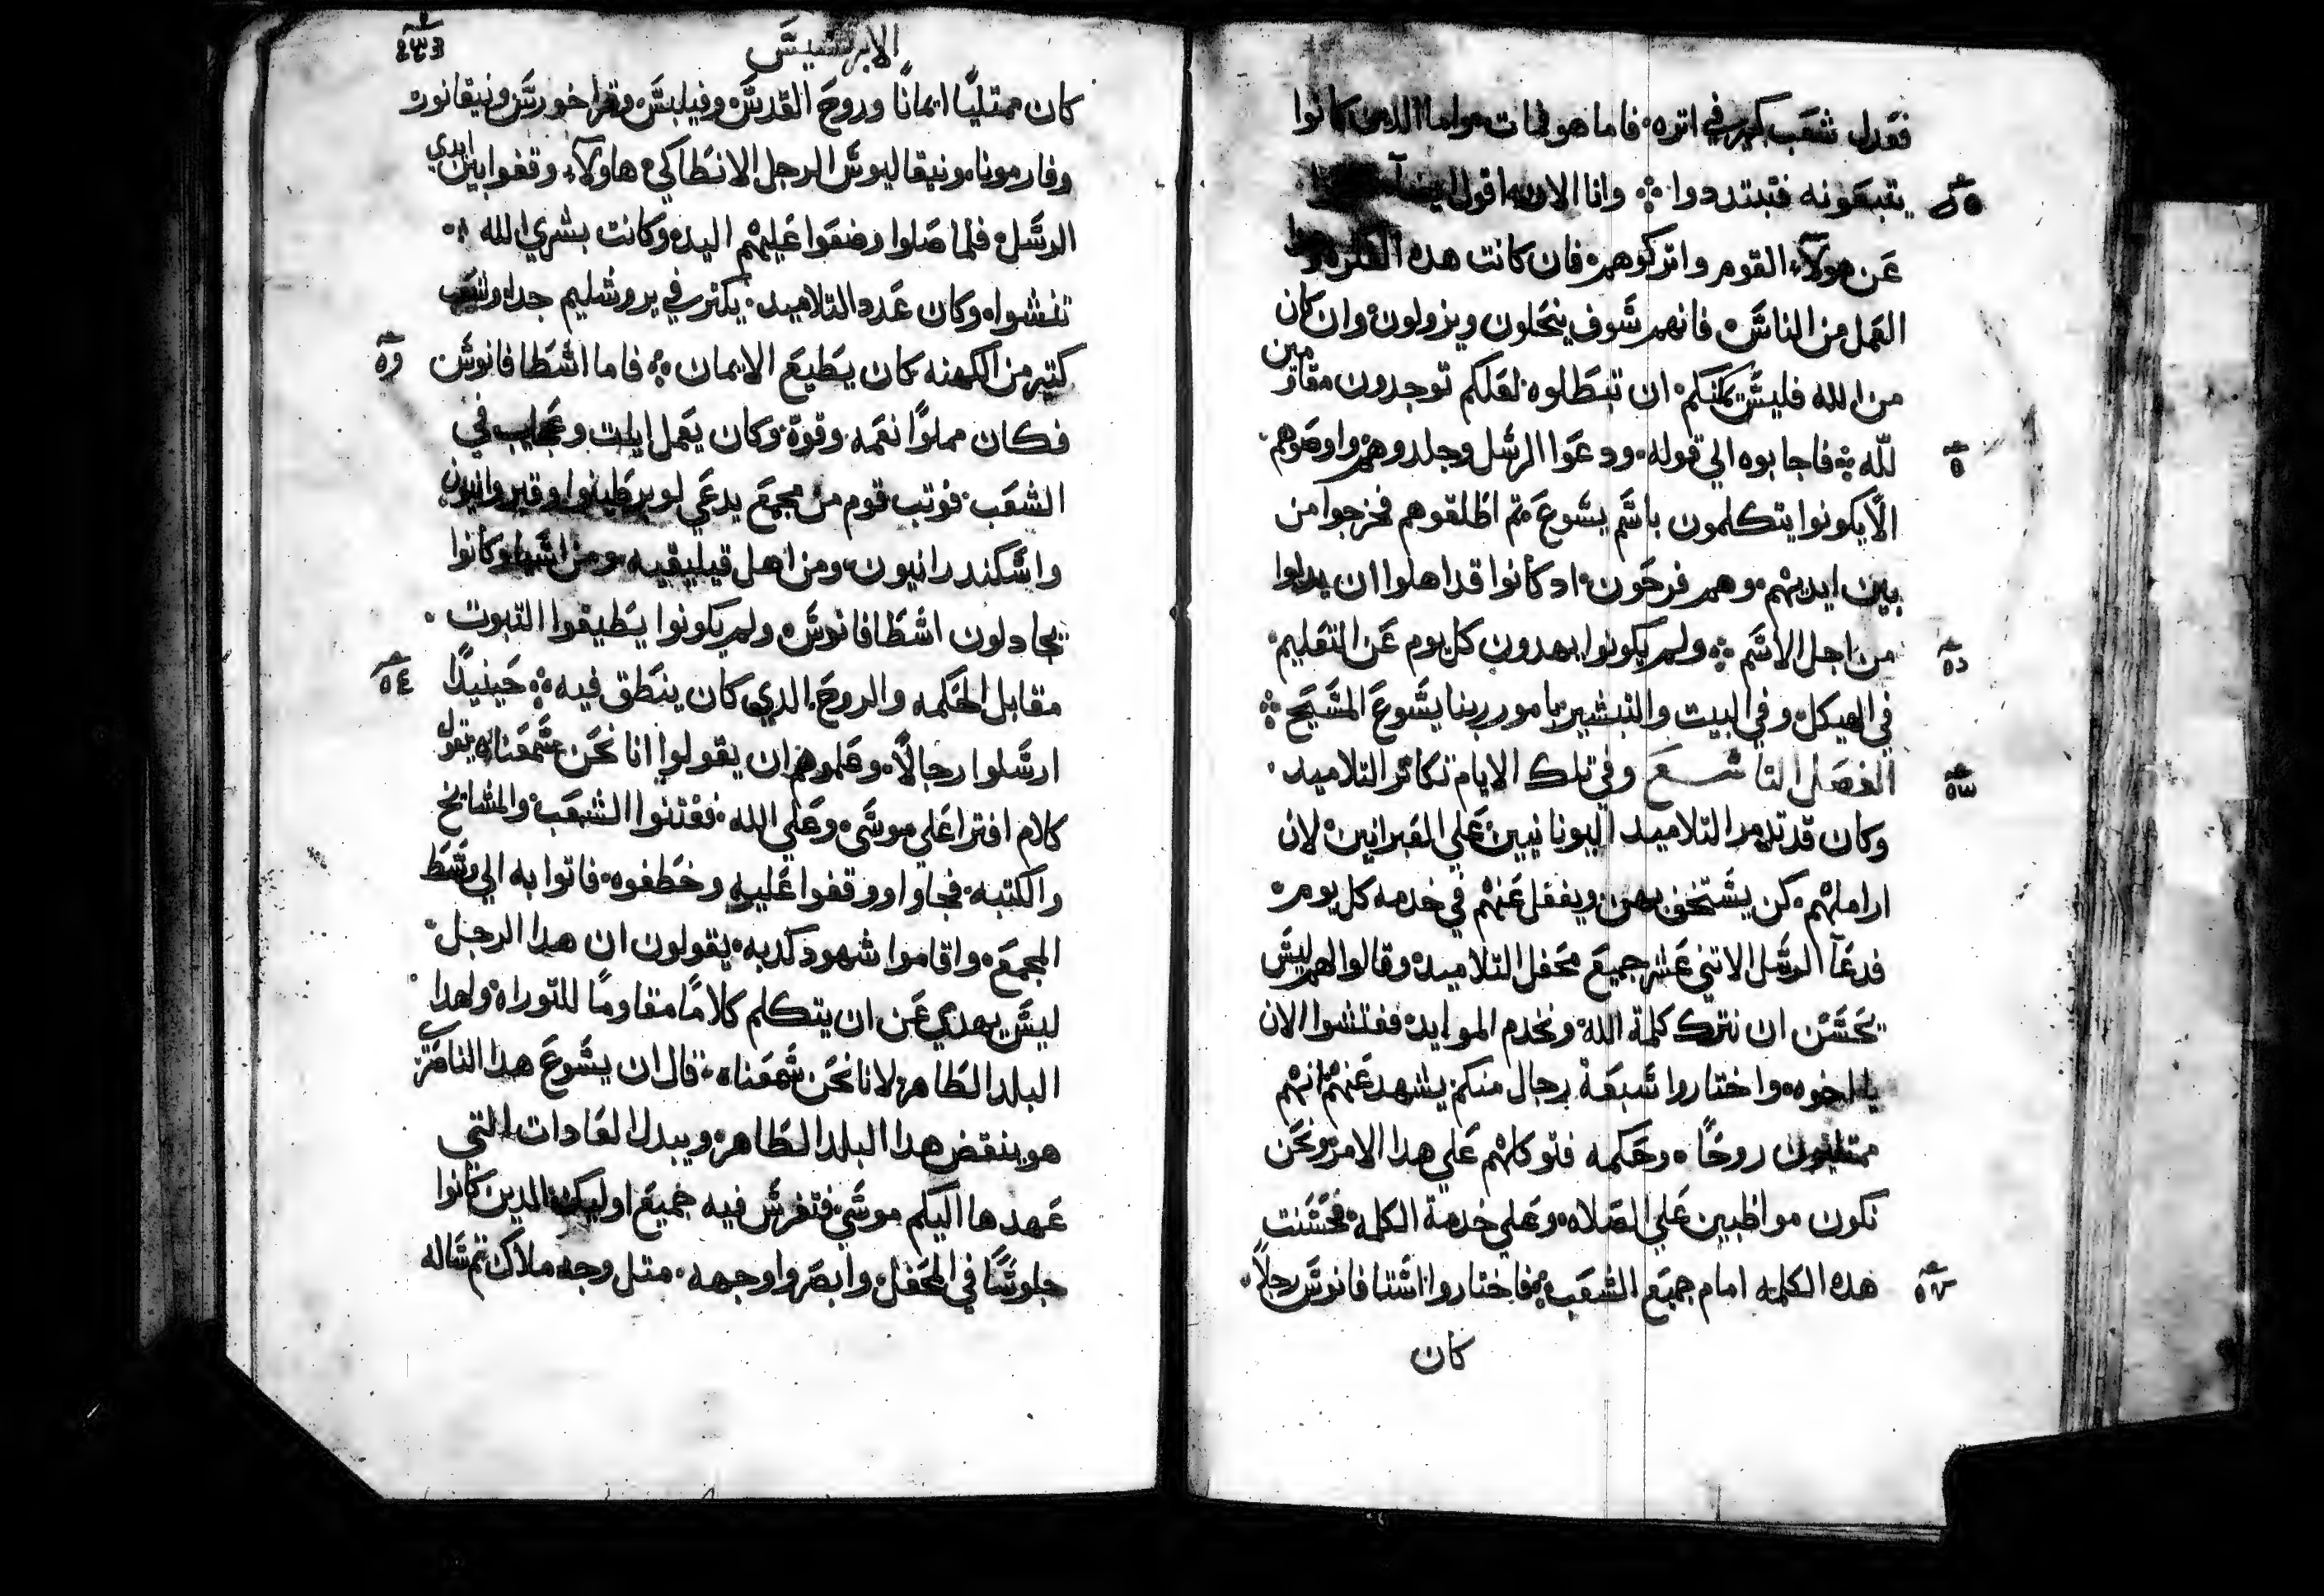 فعدل شعب كبير في اتره فاما هو فمات واما الدين كانوا
يتبعونه فتبتددوا وانا الان اقول
عن هولآء القوم واتركوهم فان كانت هده الفكره وهدا
العمل من الناس فانهم سوف ينحلون ويزولون وان كان
من الله فليس يمكنكم ان تبطلوه لعلكم توجدون مقاومين
لله فاجابوه الي قوله ودعوا الرسل وجلدوهم واوصوهم
الا يكونوا يتكلمون باسم يسوع تم اطلقوهم فخرجوا من
بين ايديهم وهم فرحون اد كانوا قد اهلوا ان يدلوا
من اجل الاسم ولم يكونوا يهدون كل يوم عن التعليم
في الهيكل وفي البيت والتبشير بامور ربنا يسوع المسيح
الفصل التاسع وفي تلك الايام تكاتر التلاميد
وكان قد تدمر التلاميد اليونانيين علي العبرانيين لان
اراملهم كن يستخف بهن ويغفل عنهم في خدمه كل يوم
فدعآ الرسل الاتني عشر جميع محفل التلاميد وقالوا لهم ليس
يحسن ان نترك كلمة الله ونخدم الموايد ففتشوا الان
يا اخوه واختاروا سبعة رجال منكم يشهد عنهم انهم
ممتليون روحًا وحكمه فنوكلهم علي هدا الامر ونحن
نكون مواظبين علي الصلاه وعلي خدمة الكلمه فحسنت
هده الكلمه امام جميع الشعب فاختاروا استافانوس رجلًا
كان
الابركسيس
كان ممتليًا ايمانًا وروح القدس وفيلبس وقراخورس ونيقانور
وفارمونا ونيقاليوس الرجل الانطاكي هاولآء وقفوا بين ايدي
الرسل فلما صلوا وضعوا عليهم اليد وكانت بشري الله
تنشوا وكان عدد التلاميد يكتر في يروشليم جدا وشعب
كتير من الكهنه كان يطيع الايمان فاما اسطافانوس
فكان مملوًا نعمه وقوة وكان يعمل ايات وعجايب في
الشعب فوتب قوم من مجمع يدعي لوبرطينوا وقيروانيون
واسكندرانيون ومن اهل قيليقيه ومن اسيا وكانوا
يجادلون اسطافانوس ولم يكونوا يطيقوا التبوت
مقابل الحكمه والروح الدي كان ينطق فيه حينيدًا
ارسلوا رجالًا وعلموهم ان يقولوا انا نحن سمعناه يقول
كلام افترا علي موسي وعلي الله ففتنوا الشعب والمشايخ
والكتبه فجاوا ووقفوا عليه وخطفوه فاتوا به الي وسط
المجمع واقاموا شهود كدبه يقولون ان هدا الرجل
ليس يهدي عن ان يتكلم كلامًا مقاومًا للتوراه ولهدا
البلد الطاهر لانا نحن سمعناه قال ان يسوع هدا الناصري
هو ينقض هدا البلد الطاهر ويبدل العادات التي
عهدها اليكم موسي فتفرس فيه جميع اوليك الدين كانوا
جلوسًا في المحفل وابصروا وجهه متل وجه ملاك تم ساله